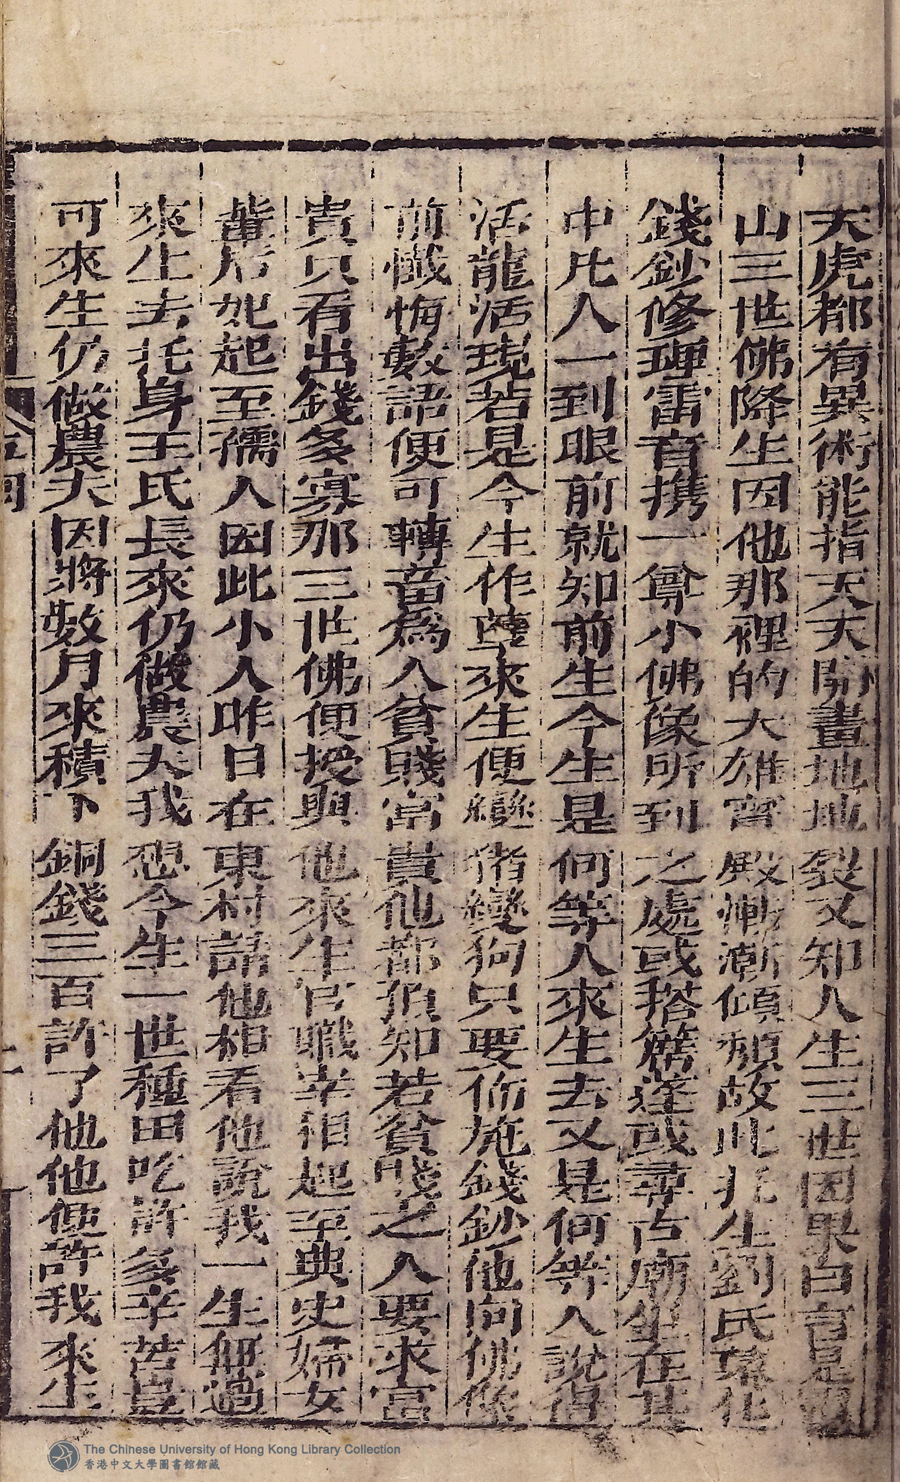 天虎都有異術能指天天開畫地地裂又知人生三世因果自言是
山三世佛降生因他那裡的大雄寶殿慚漸傾頹故此托生劉氏募化
錢鈔修理雷音携一尊小佛像所到之處或搭蓆蓬或尋古廟坐在其
中凡人一到眼前就知前生今生是何等人來生去又是何等人說得
活龍活現若是今生作孽來生便變猪變狗只要你施錢鈔他向佛像
前懺悔數語便可轉畜為人貧賤富貴他都預知若貧賤之人要求富
貴只看出錢多寡那三世佛便授與他來生官職宰相起至典史婦女
從后妃起至孺人因此小人昨日在東村請他相看他說我一生無過
來生去托身王氏長來仍做農夫我想今生一世種田吃許多辛苦豈
可來生仍做農夫因將數月來積下銅錢三百許了他他便許我來生
五回
The Chinese University of Hong Kong Library Collection
香港中文大學圖書館館藏